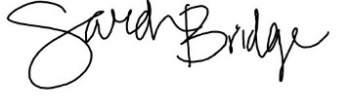 Sarah Bridge